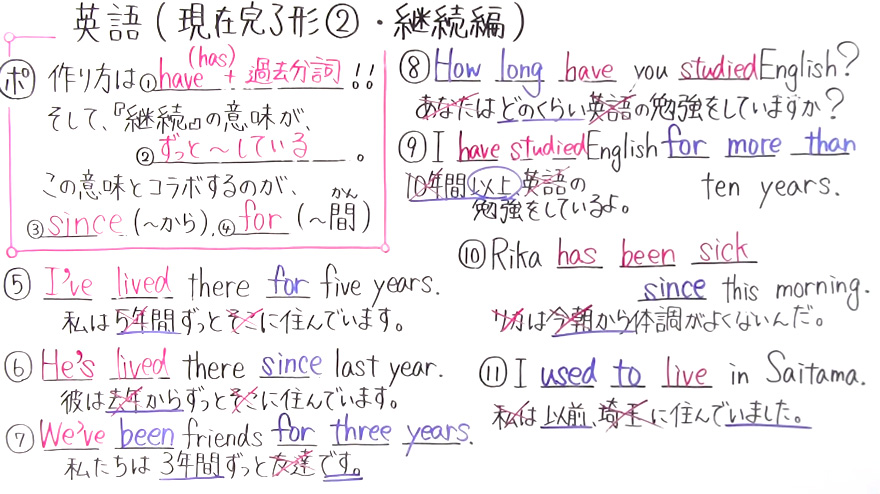 英語(現在完了形②・継続編)
ポ 作り方は①have(has) + 過去分詞!!
そして、『継続』の意味が、
②ずっと〜している。
この意味とコラボするのが、
③since(〜から), ④for(〜間)
かん
⑤ I've lived there for five years.
私は5年間ずっとそこに住んでいます。
⑥ He's lived there since last year.
彼は去年からずっとそこに住んでいます。
⑦ We've been friends for three years.
私たちは3年間ずっと友達です。
⑧ How long have you studied English?
あなたはどのくらい英語の勉強をしていますか?
⑨ I have studied English for more than
ten years.
10年間以上英語の
勉強をしているよ。
⑩ Rika has been sick
since this morning.
リカは今朝から体調がよくないんだ。
⑪ I used to live in Saitama.
私は以前、埼玉に住んでいました。